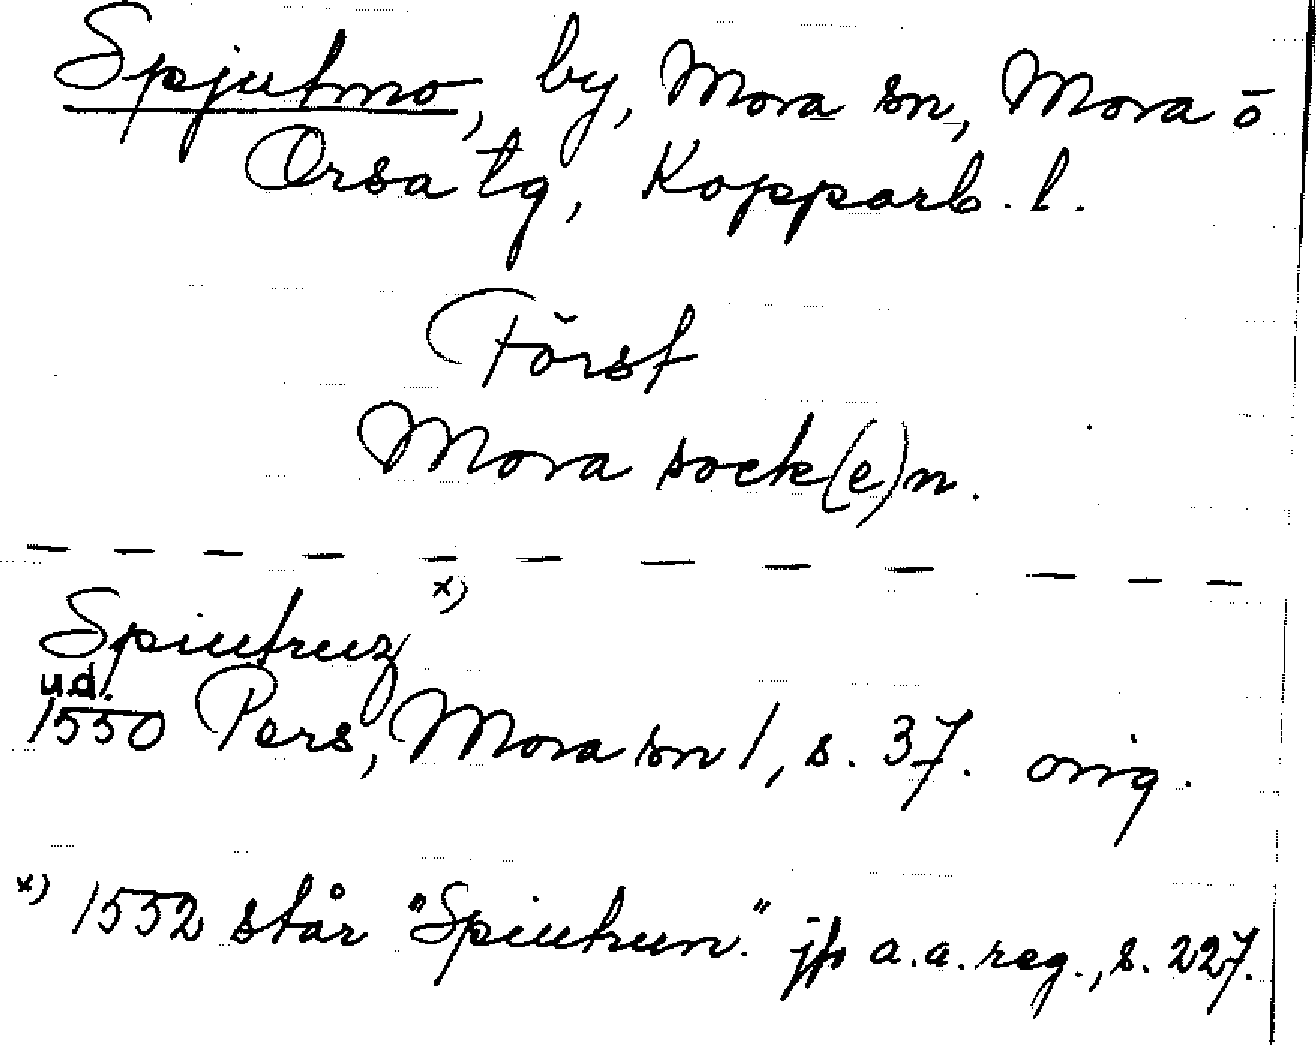 Spjutmo, by, Mora sn, Mora o
Orsa tg, Kopparb. l.
Först
Mora sock(e)n.
x)
Spiutruz
u.d.
1550 Pers, Mora sn 1, s. 37. orig.
x) 1552 står "Spiutrun." jfr a.a. reg., s. 227.